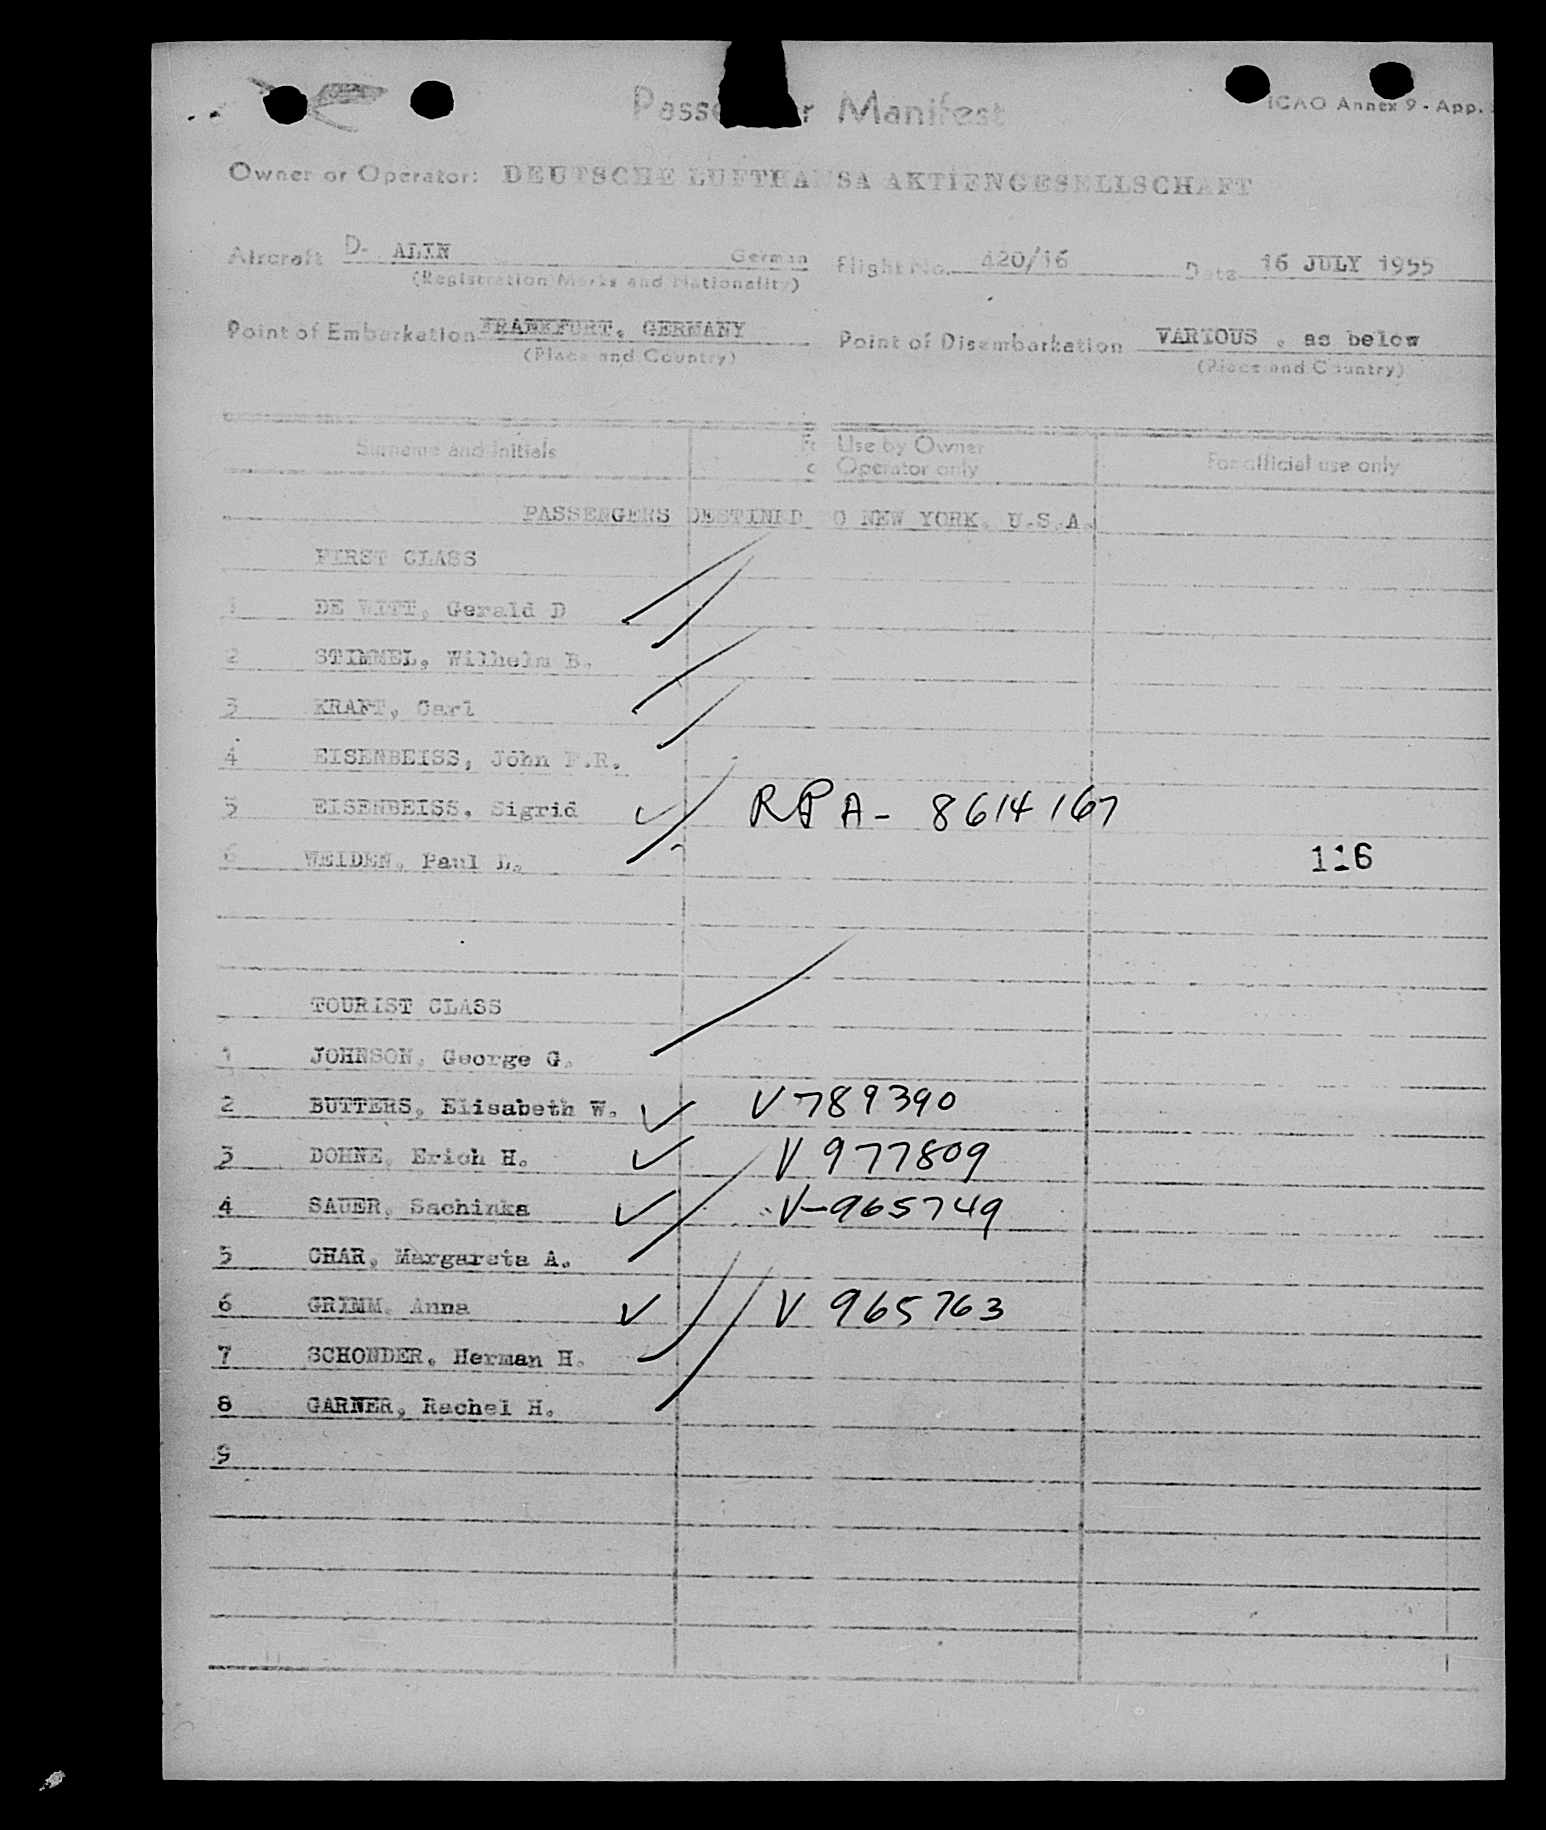 Passenger Manifest
ICAO Annex 9 - App.
Owner or Operator: DEUTSCHE LUFTHANSA AKTIENGESELLSCHAFT
Aircraft D- ALIN German Flight No. 420/16 Date 16 JULY 1955
(Registration Marks and Nationality)
Point of Embarkation FRANKFURT, GERMANY Point of Disembarkation VARIOUS , as below
(Place and Country) (Place and Country)
Surname and initials Use by Owner For official use only
Operator only
PASSENGERS DESTINED TO NEW YORK, U.S.A.
FIRST CLASS
1 DE WITT, Gerald D
2 STIMMEL, Wilhelm B.
3 KRAFT, Carl
4 EISENBEISS, John F.R.
5 EISENBEISS, Sigrid RPA- 8614167
6 WEIDEN, Paul L. 116
TOURIST CLASS
1 JOHNSON, George G.
2 BUTTERS, Elisabeth W. V789390
3 DOHNE, Erich H. V 977809
4 SAUER, Sachinka V-965749
5 CHAR, Margareta A.
6 GRIMM, Anna V 965763
7 SCHONDER, Herman H.
8 GARNER, Rachel H.
9